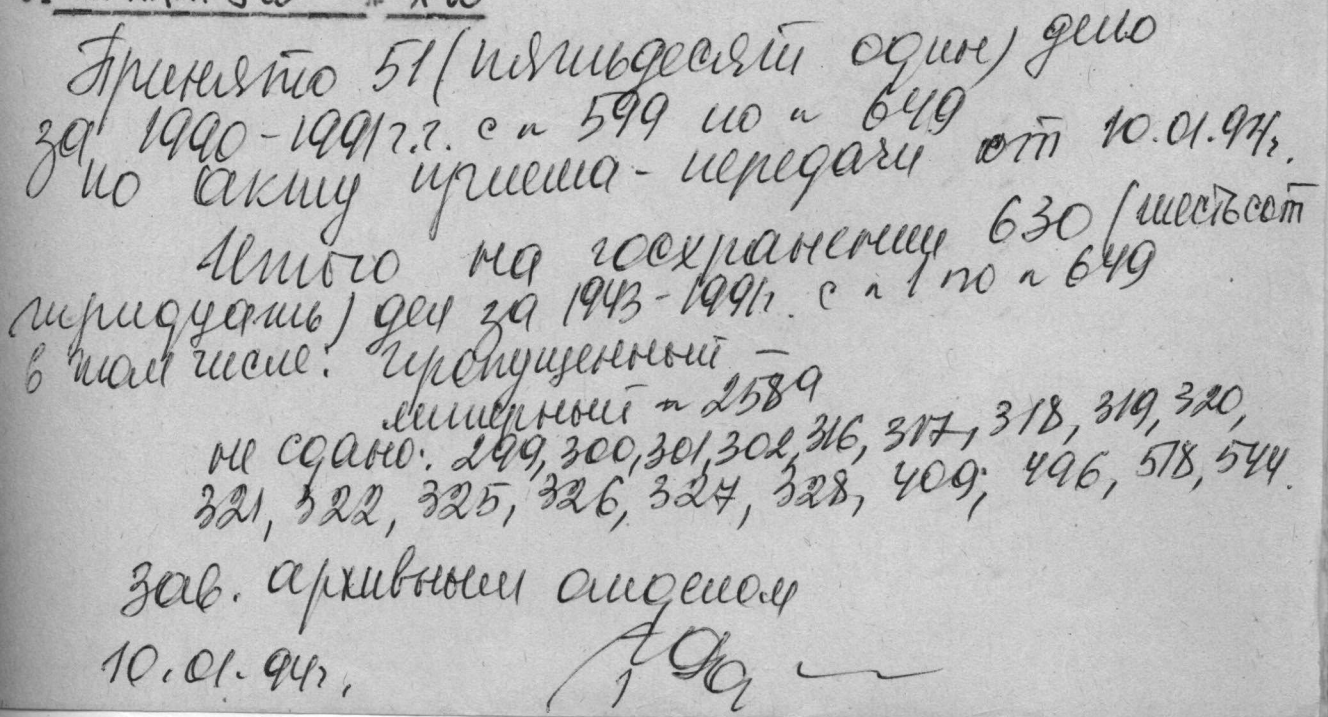 Принято 51 (пятьдесят один) дело
за 1990-1991г.г. с № 599 по № 649
по акту приема-передачи от 10.01.94г.
Итого на госхранении 630 (шестьсот
тридцать) дел за 1943-1991г. с № 1 по № 649
в том числе: пропущенный —
литерный № 258а
не сдано: 299, 300, 301, 302, 316, 317, 318, 319, 320,
321, 322, 325, 326, 327, 328, 409, 496, 518, 544.
Зав. архивным отделом
10.01.94г.